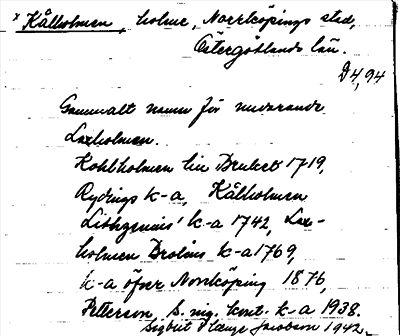 x Kålholmen, holme, Norrköpings stad,
Östergötlands län.
D4,94
Gammalt namn för nuvarande
Laxholmen.
Kohlholmen 1719,
Rydings k-a, Kålholmen
Lithzenius' k-a 1742, Lax-
holmen Brolins k-a 1769,
k-a öfver Norrköping 1876,
Petterson, S. nig. kont. k-a 1938.
Sigbrit Plænge Jacobson 1942.